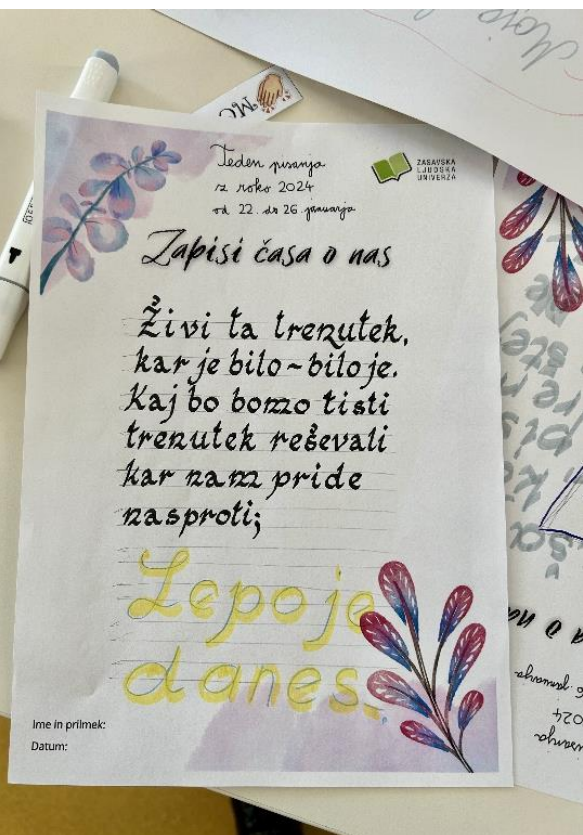 Teden pisanja
z roko 2024
od 22. do 26. januarja
ZASAVSKA
LJUDSKA
UNIVERZA
Zapisi časa o nas
Živi ta trenutek,
kar je bilo-bilo je.
Kaj bo bomo tisti
trenutek reševali
kar nam pride
nasproti;
Lepo je
danes.
Ime in priimek:
Datum: